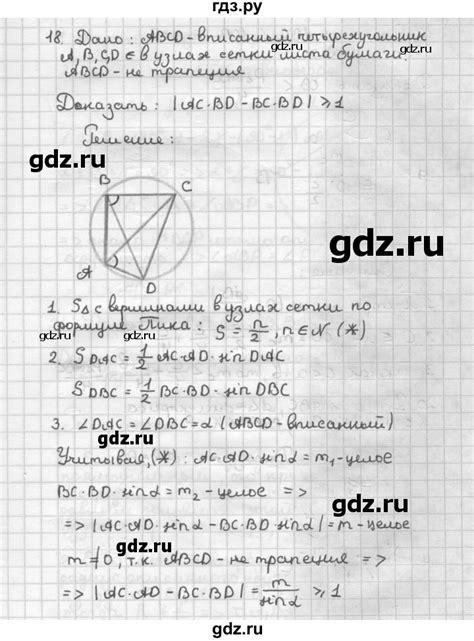 гдз.ру
18. Дано: ABCD - вписанный четырехугольник
A, B, C, D ∈ в узлах сетки листа бумаги.
ABCD - не трапеция
Доказать: |AC·BD - BC·BD| ⩾ 1
Решение:
gdz.ru
gdz.ru
B
C
gdz.ru
A
D
1. S△ с вершинами в узлах сетки по
gdz.ru
gdz.ru
формуле Пика: S = n/2, n ∈ N (*)
2. S DAC = 1/2 AC·AD · sin DAC
S DBC = 1/2 BC·BD · sin DBC
3. ∠DAC = ∠DBC = α (ABCD - вписанный)
gdz.ru
Учитывая, (*) : AC·AD · sin α = m₁ - целое
BC·BD · sin α = m₂ - целое =>
=> |AC·AD · sin α - BC·BD · sin α| = m - целое
m ≠ 0, т.к. ABCD - не трапеция =>
gdz.ru
gdz.ru
=> |AC·AD - BC·BD| = m/sin α ⩾ 1
gdz.ru